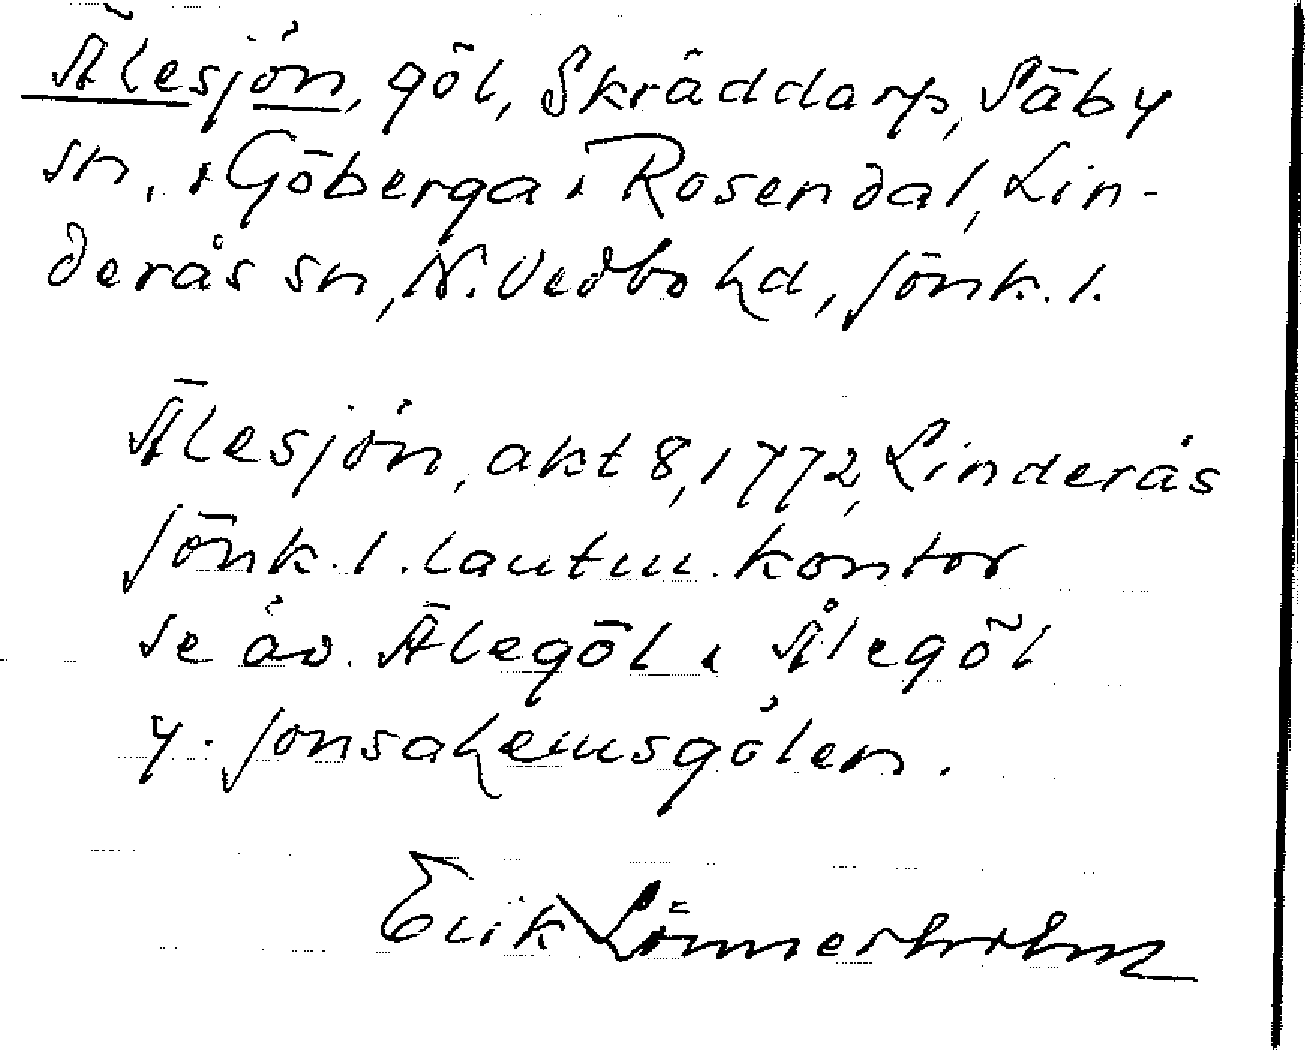 Älesjön, göl, Skräddarp, Säby
sn, & Göberga & Rosendal, Lin-
derås sn, N. Vedbo hd, Jönk. l.
Älesjön, akt 8, 1772, Linderås
Jönk. l. lantm. kontor
se äv. Älegöl & Ålegöl
y. Jonsahemsgölen.
Erik Lönnerholm